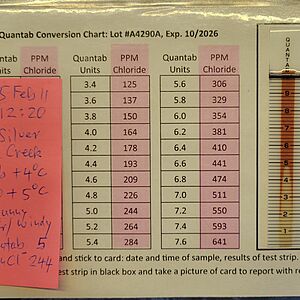 Quantab Conversion Chart: Lot #A4290A, Exp. 10/2026
Quantab Units PPM Chloride Quantab Units PPM Chloride Quantab Units PPM Chloride
3.4 125 5.6 306
3.6 137 5.8 329
3.8 150 6.0 354
4.0 164 6.2 381
4.2 178 6.4 410
4.4 193 6.6 441
4.6 209 6.8 474
4.8 226 7.0 511
5.0 244 7.2 550
5.2 264 7.4 593
5.4 284 7.6 641
and stick to card: date and time of sample, results of test strip.
test strip in black box and take a picture of card to report with re
5 Feb 11
12:20
Silver
Creek
+4°C
+5°C
windy
5
244
QUANTAB
9
8
7
6
5
4
3
2
1